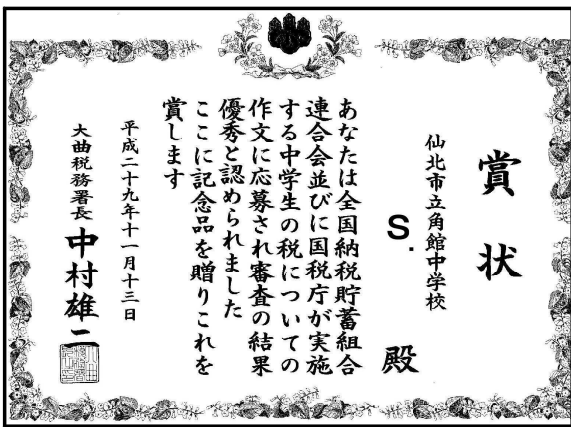 賞状
仙北市立角館中学校
S. 殿
あなたは全国納税貯蓄組合
連合会並びに国税庁が実施
する中学生の税についての
作文に応募され審査の結果
優秀と認められました
ここに記念品を贈りこれを
賞します
平成二十九年十一月十三日
大曲税務署長 中村雄二